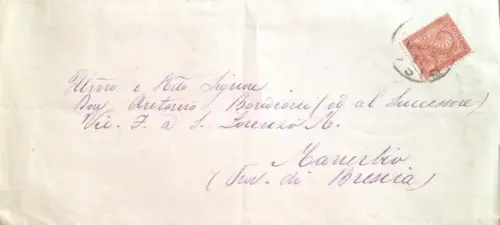 Illmo e Rdo Signore
Don Antonio Bordioni (od al Successore)
Vic. F. a S. Lorenzo M.
Manerbio
(Prov. di Brescia)